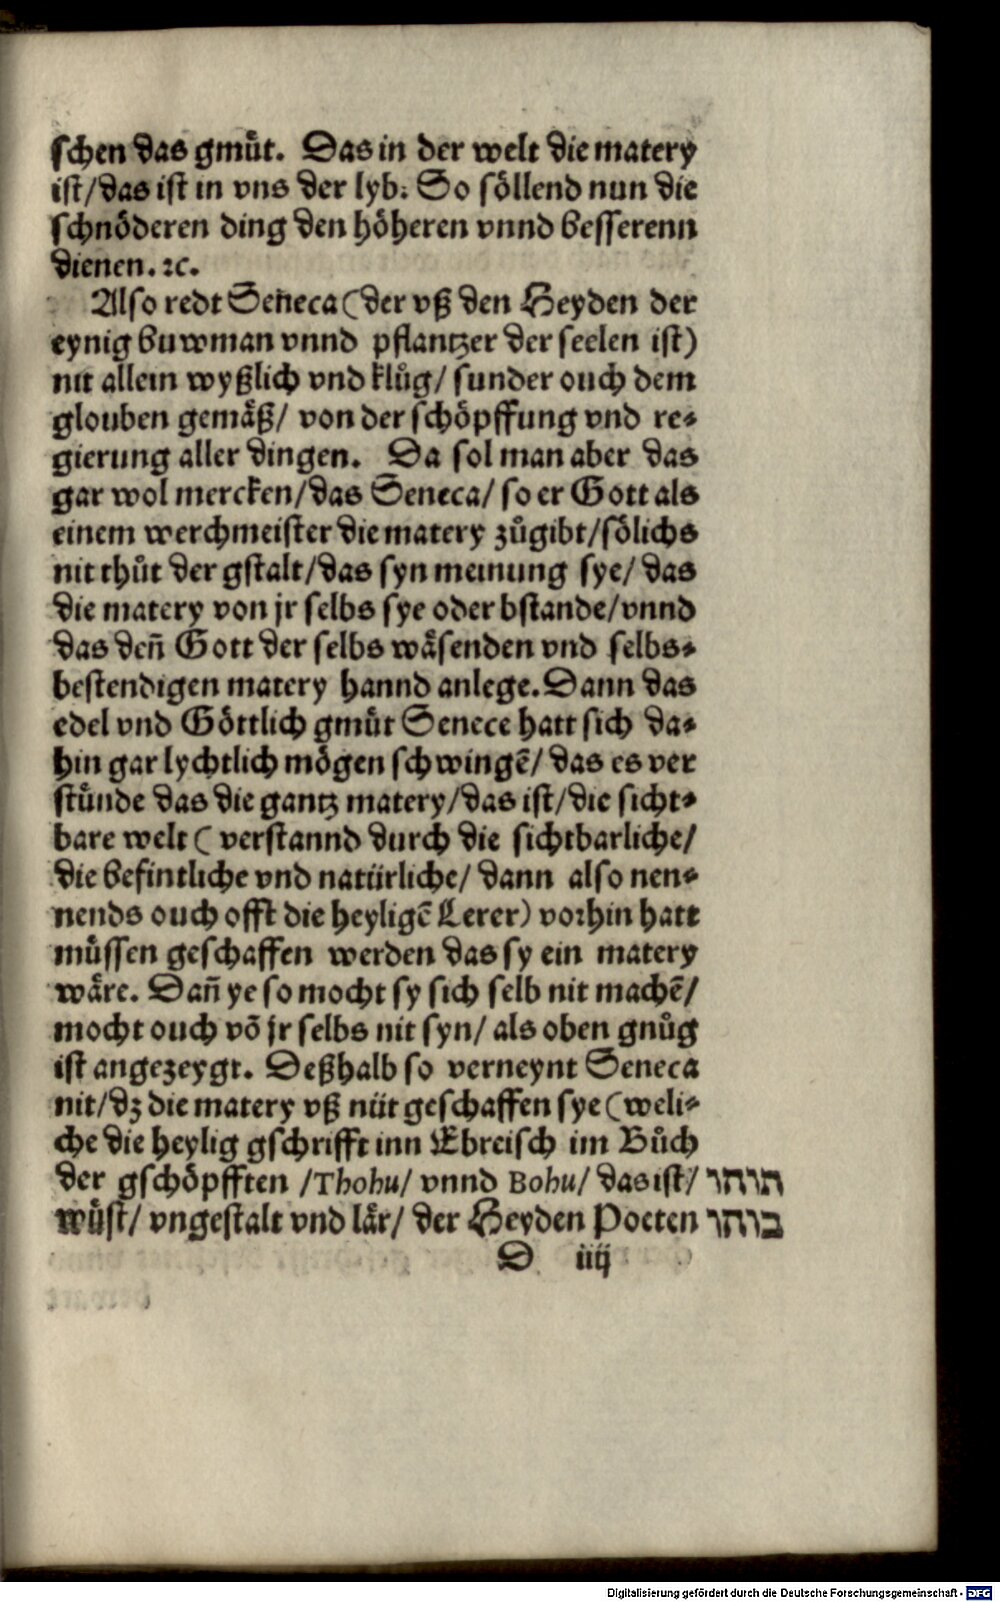 schen das gmuͤt. Das in der welt die matery
ist/das ist in vns der lyb: So soͤllend nun die
schnoͤderen ding den hoͤheren vnnd besserenn
dienen. ꝛc.
Also redt Seneca (der vß den Heyden der
eynig buwman vnnd pflantzer der seelen ist)
nit allein wyßlich vnd kluͦg/ sunder ouch dem
glouben gemaͤß/ von der schoͤpffung vnd re⸗
gierung aller dingen. Da sol man aber das
gar wol mercken/das Seneca/ so er Gott als
einem werchmeister die matery zuͦgibt/soͤlichs
nit thuͦt der gstalt/das syn meinung sye/ das
die matery von jr selbs sye oder bstande/vnnd
das deñ Gott der selbs waͤsenden vnd selbs⸗
bestendigen matery hannd anlege. Dann das
edel vnd Goͤttlich gmuͤt Senece hatt sich da⸗
hin gar lychtlich moͤgen schwingē/ das es ver
stuͤnde das die gantz matery/das ist/die sicht⸗
bare welt ( verstannd durch die sichtbarliche/
die befintliche vnd natürliche/ dann also nen⸗
nends ouch offt die heyligē Lerer) vorhin hatt
muͤssen geschaffen werden das sy ein matery
waͤre. Dañ ye so mocht sy sich selb nit machē/
mocht ouch võ jr selbs nit syn/ als oben gnuͦg
ist angezeygt. Deßhalb so verneynt Seneca
nit/dz die matery vß nüt geschaffen sye (weli⸗
che die heylig gschrifft inn Ebreisch im Buͦch
der gschoͤpfften /Thohu/ vnnd Bohu/ das ist/ תוהו
wuͤst/ vngestalt vnd laͤr/ der Heyden Poeten בוהו
D iiij